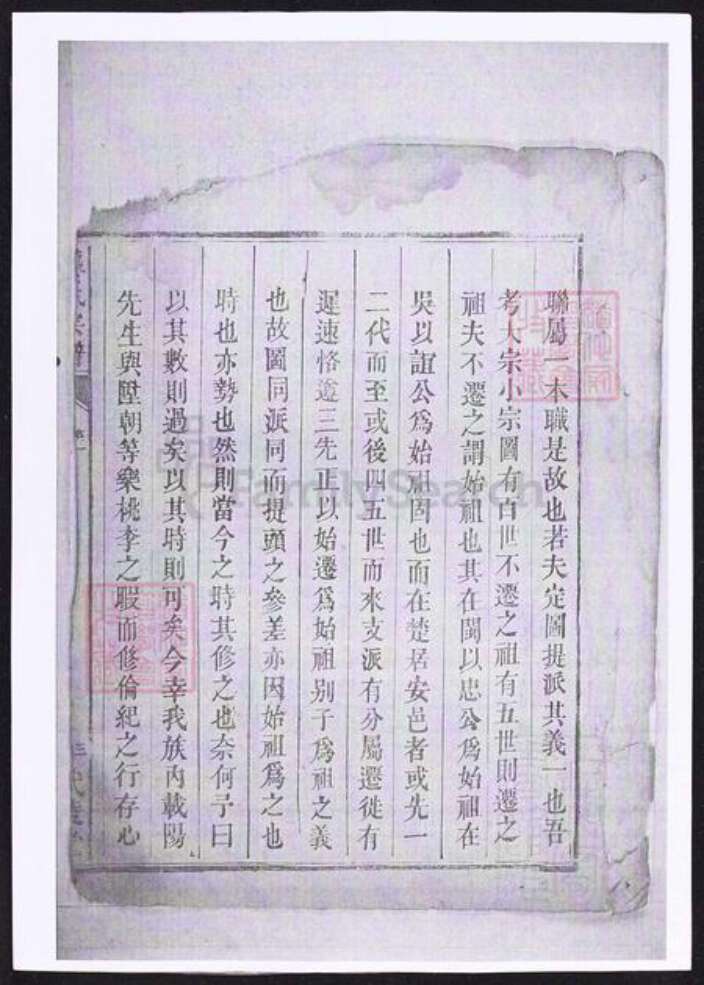 聯屬一本職是故也若夫定圖提派其義一也吾
考大宗小宗圖有百世不遷之祖有五世則遷之
祖夫不遷之謂始祖也其在閩以忠公爲始祖在
吳以誼公爲始祖固也而在楚居安邑者或先一
二代而至或後四五世而來支派有分屬遷徙有
遲速恪遵三先正以始遷爲始祖別子爲祖之義
也故圖同派同而提頭之參差亦因始祖爲之也
時也亦勢也然則當今之時其修之也奈何予曰
以其數則過矣以其時則可矣今幸我族內載陽
先生與陞朝等樂桃李之暇而修倫紀之行存心
氏宗譜
卷一
FamilySearch